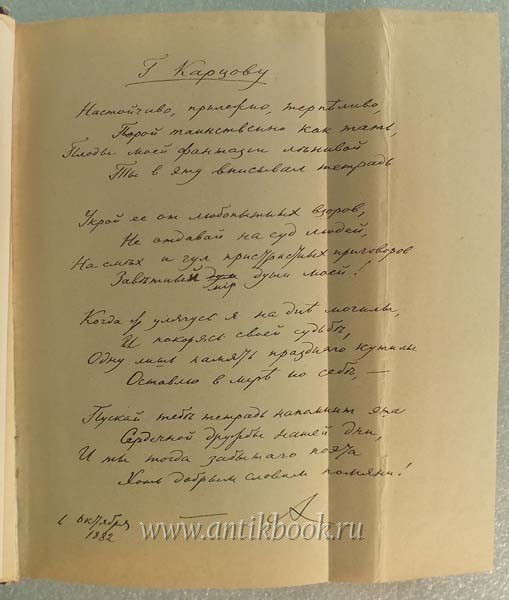 Г Карцову
Настойчиво, прилежно, терпѣливо,
Порой таинственно как тать,
Плоды моей фантазіи лѣнивой
Ты в эту вписывал тетрадь
Укрой ее от любопытных взоров,
Не отдавай на суд людей,
На смѣх и гул пристрастных приговоров
Завѣтный мір души моей!
Когда улягусь я на днѣ могилы,
И покорясь своей судьбѣ,
Одну лишь память празднаго кутилы
Оставлю в мірѣ по себѣ, —
Пускай тебѣ тетрадь напомнит эта
Сердечной дружбы нашей дни,
И ты тогда забытаго поэта
Хоть добрым словом помяни!
6 Октября
1882
www.antikbook.ru